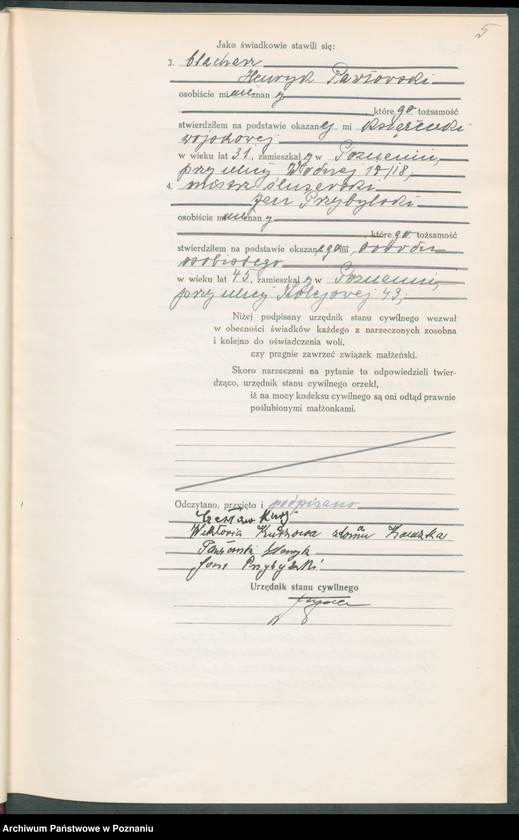 5
Jako świadkowie stawili się:
3. blacharz
Henryk Pawłowski
osobiście mi nieznany
, które go tożsamość
stwierdziłem na podstawie okazanej mi książeczki
wojskowej
w wieku lat 31, zamieszkały w Poznaniu,
przy ulicy Wodnej 17/18,
4. mistrz ślusarski
Jan Przybylski
osobiście mi nieznany
, które go tożsamość
stwierdziłem na podstawie okazanego mi dowodu
osobistego
w wieku lat 45, zamieszkały w Poznaniu,
przy ulicy Kolejowej 43,
Niżej podpisany urzędnik stanu cywilnego wezwał
w obecności świadków każdego z narzeczonych zosobna
i kolejno do oświadczenia woli,
czy pragnie zawrzeć związek małżeński.
Skoro narzeczeni na pytanie to odpowiedzieli twier-
dząco, urzędnik stanu cywilnego orzekł,
iż na mocy kodeksu cywilnego są oni odtąd prawnie
poślubionymi małżonkami.
Odczytano, przyjęto i podpisano
Czesław
Wiktoria z domu
Pawłowski Henryk
Jan Przybylski
Urzędnik stanu cywilnego
Archiwum Państwowe w Poznaniu